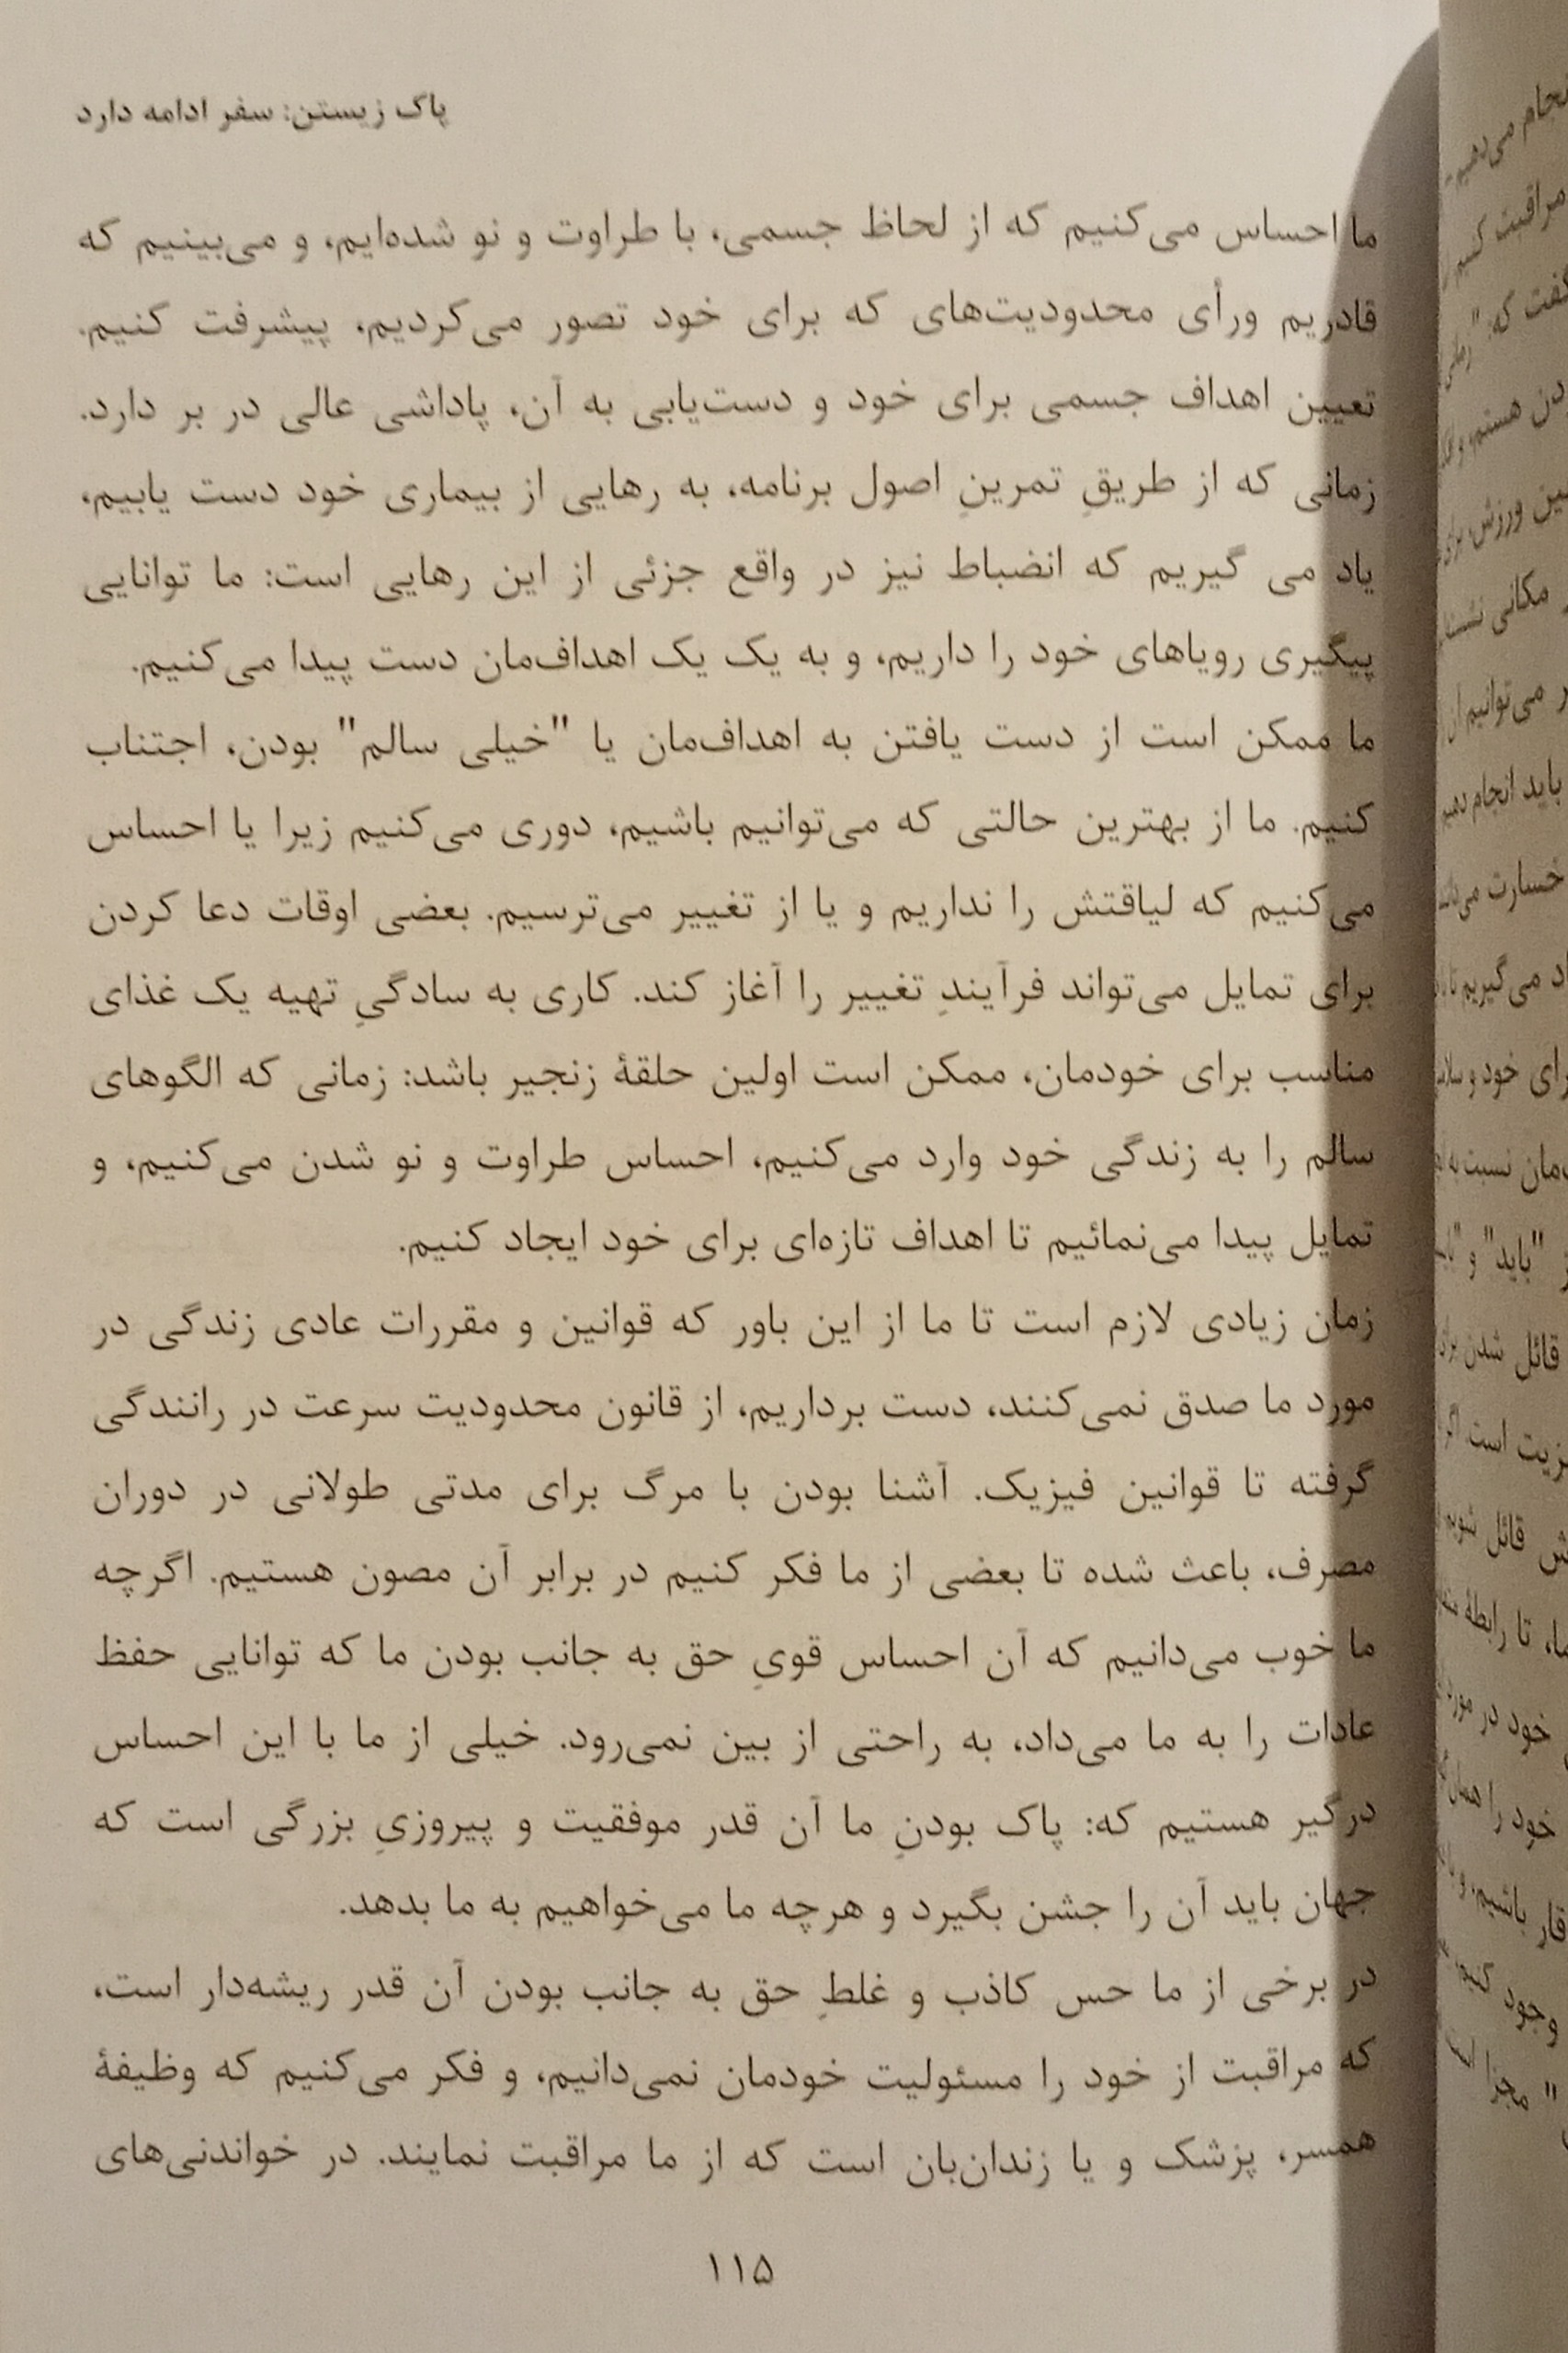 پاک زیستن: سفر ادامه دارد
ما احساس می‌کنیم که از لحاظ جسمی، با طراوت و نو شده‌ایم، و می‌بینیم که
قادریم ورأی محدودیت‌های که برای خود تصور می‌کردیم، پیشرفت کنیم.
تعیین اهداف جسمی برای خود و دست‌یابی به آن، پاداشی عالی در بر دارد.
زمانی که از طریقِ تمرینِ اصول برنامه، به رهایی از بیماری خود دست یابیم،
یاد می گیریم که انضباط نیز در واقع جزئی از این رهایی است: ما توانایی
پیگیری رویاهای خود را داریم، و به یک یک اهداف‌مان دست پیدا می‌کنیم.
ما ممکن است از دست یافتن به اهداف‌مان یا "خیلی سالم" بودن، اجتناب
کنیم. ما از بهترین حالتی که می‌توانیم باشیم، دوری می‌کنیم زیرا یا احساس
می‌کنیم که لیاقتش را نداریم و یا از تغییر می‌ترسیم. بعضی اوقات دعا کردن
برای تمایل می‌تواند فرآیندِ تغییر را آغاز کند. کاری به سادگیِ تهیه یک غذای
مناسب برای خودمان، ممکن است اولین حلقۀ زنجیر باشد: زمانی که الگوهای
سالم را به زندگی خود وارد می‌کنیم، احساس طراوت و نو شدن می‌کنیم، و
تمایل پیدا می‌نمائیم تا اهداف تازه‌ای برای خود ایجاد کنیم.
زمان زیادی لازم است تا ما از این باور که قوانین و مقررات عادی زندگی در
مورد ما صدق نمی‌کنند، دست برداریم، از قانون محدودیت سرعت در رانندگی
گرفته تا قوانین فیزیک. آشنا بودن با مرگ برای مدتی طولانی در دوران
مصرف، باعث شده تا بعضی از ما فکر کنیم در برابر آن مصون هستیم. اگرچه
ما خوب می‌دانیم که آن احساس قویِ حق به جانب بودن ما که توانایی حفظ
عادات را به ما می‌داد، به راحتی از بین نمی‌رود. خیلی از ما با این احساس
درگیر هستیم که: پاک بودنِ ما آن قدر موفقیت و پیروزیِ بزرگی است که
جهان باید آن را جشن بگیرد و هرچه ما می‌خواهیم به ما بدهد.
در برخی از ما حس کاذب و غلطِ حق به جانب بودن آن قدر ریشه‌دار است،
که مراقبت از خود را مسئولیت خودمان نمی‌دانیم، و فکر می‌کنیم که وظیفۀ
همسر، پزشک و یا زندان‌بان است که از ما مراقبت نمایند. در خواندنی‌های
۱۱۵